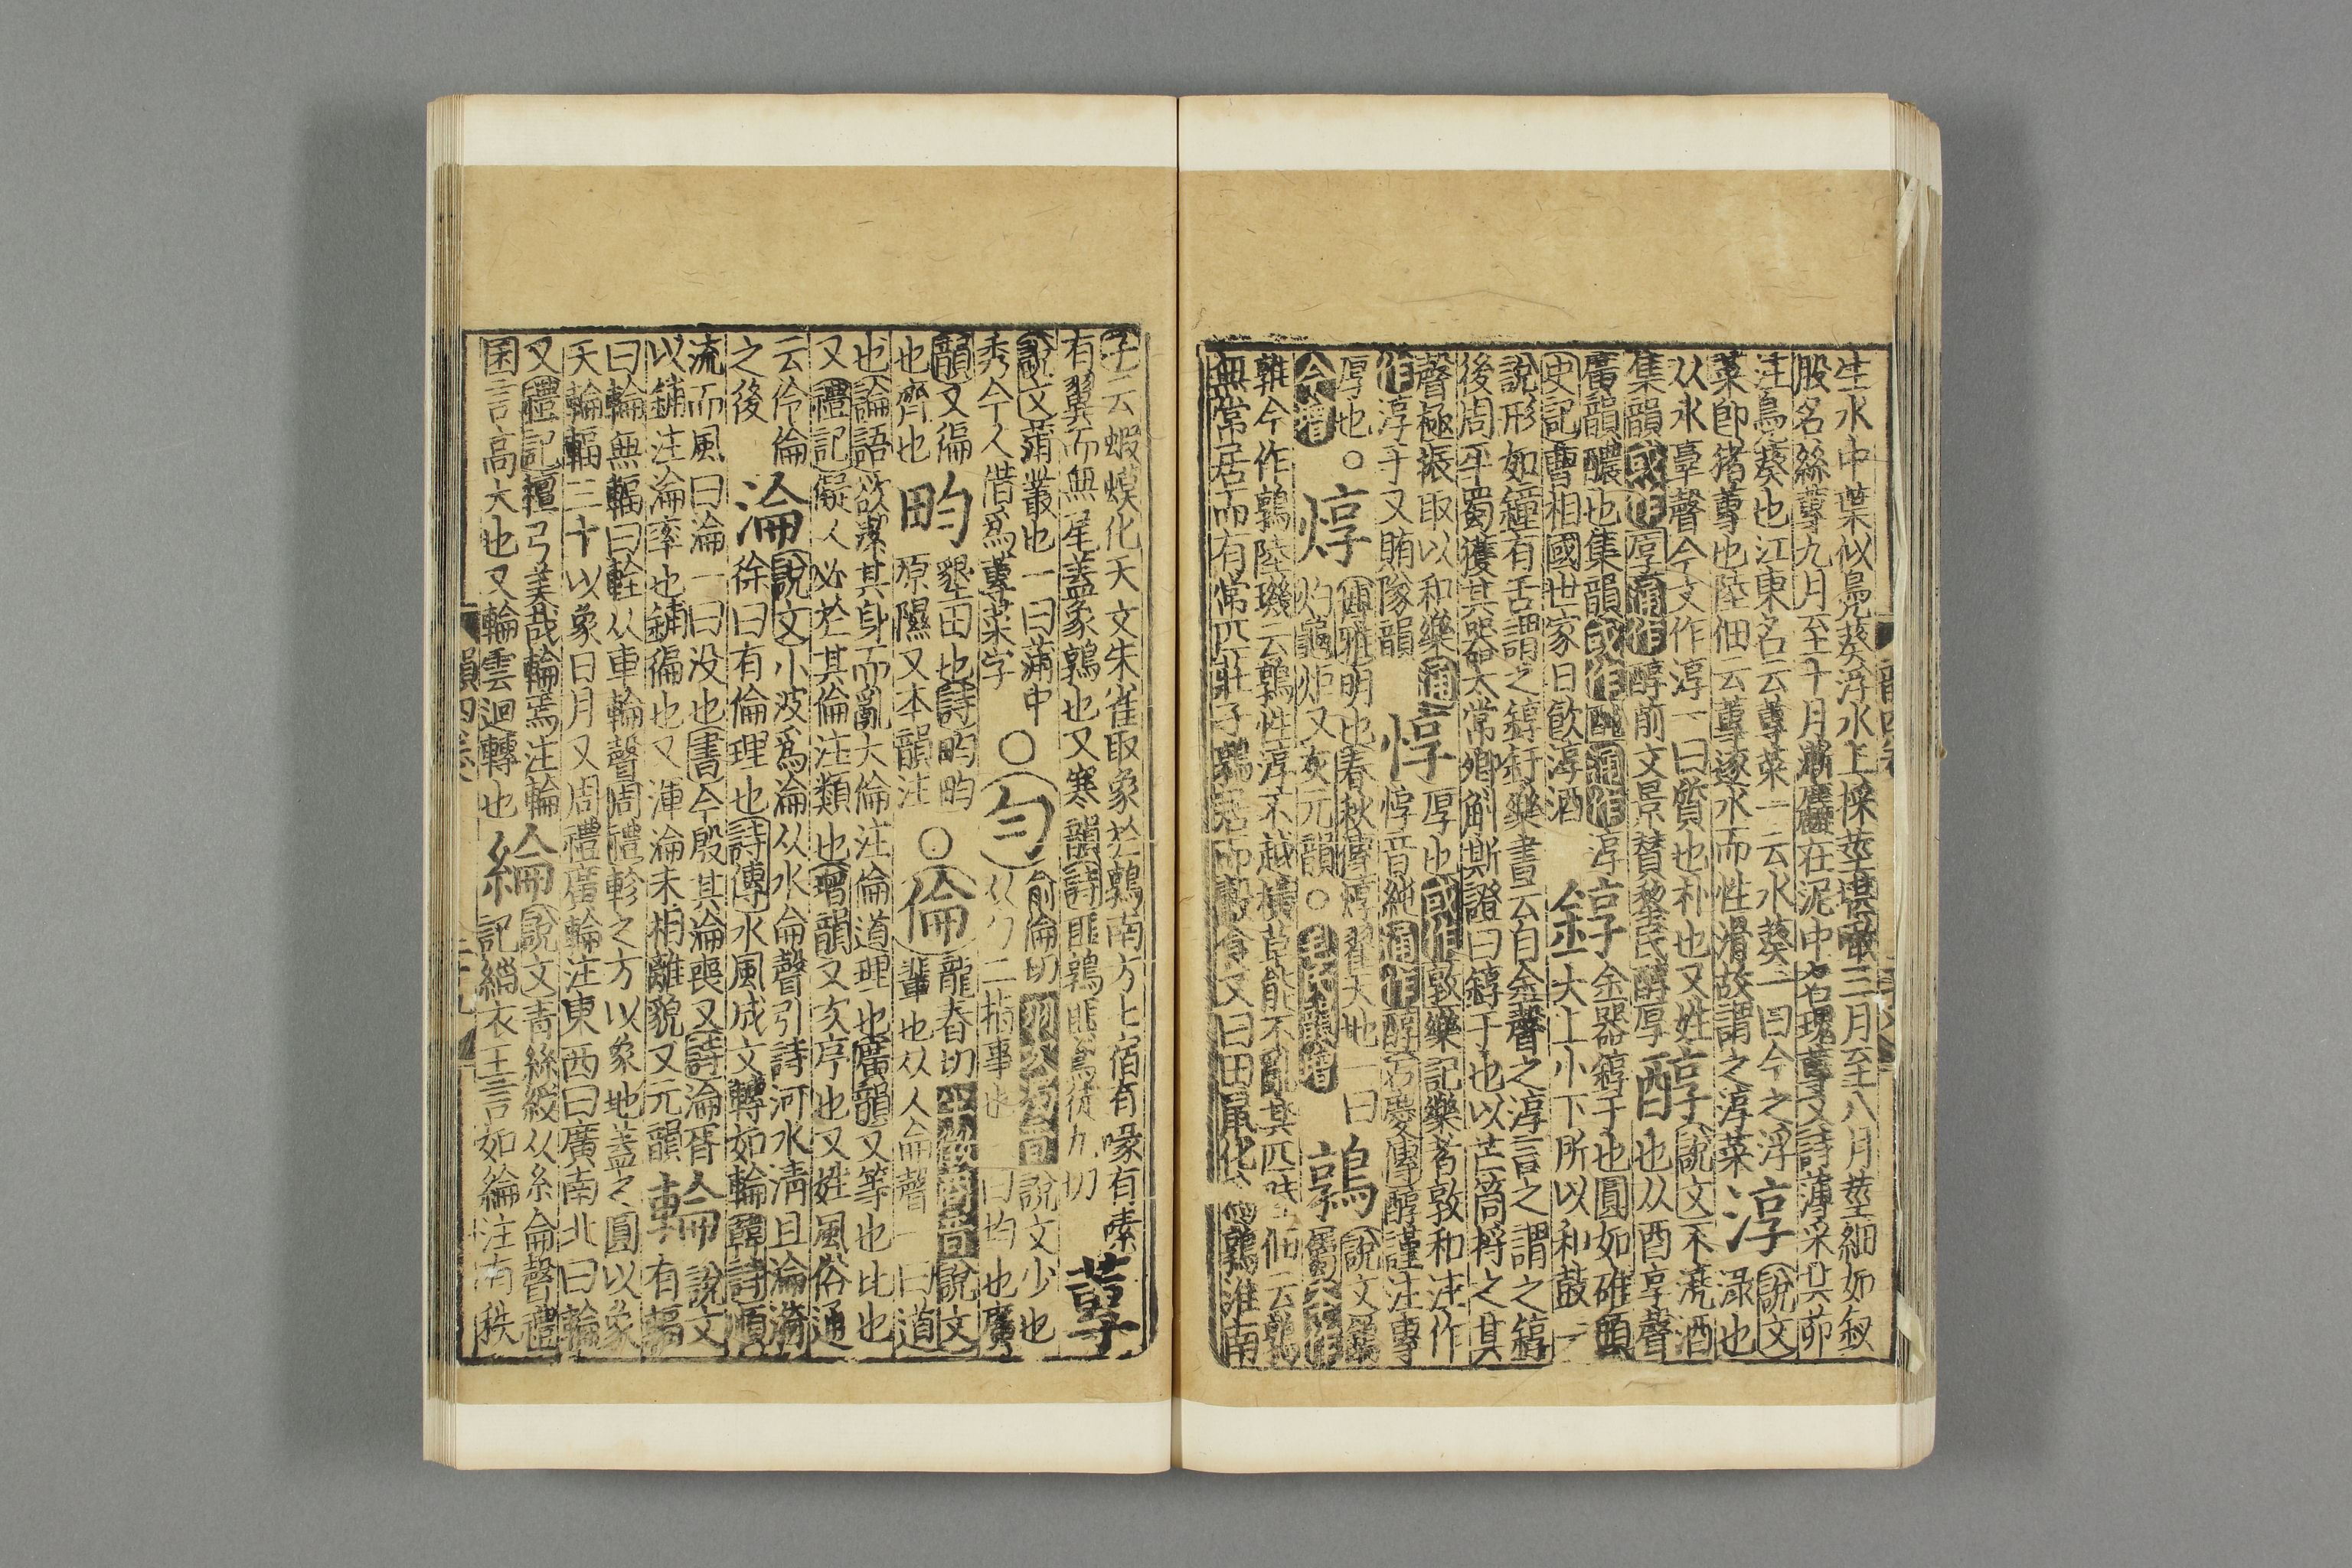 生水中葉似鳧葵浮水上採莖堪啖三月至八月莖細如釵
股名絲蓴九月至十月漸麤在泥中名瑰蓴又詩薄采其茆
注鳧葵也江東名云蓴菜一云水葵一曰今之浮
菜卽猪蓴也陸佃云蓴逐水而性滑故謂之淳菜
淳
說文
淥也
从水𦎫聲今文作淳一曰質也朴也又姓
集韻或作㕓通作醇前文景贊黎民醇厚
醇
說文不澆酒
也从酉享聲
廣韻醲也集韻或作𨠹通作淳
史記曹相國世家日飲淳酒
錞
金器錞于也圓如碓頭
大上小下所以和鼓
說形如鐘有舌謂之錞釪樂書云自金聲之淳言之謂之錞
後周平蜀獲其器太常卿斛斯證曰錞于也以芒筒捋之其
聲極振取以和樂通
作淳于又賄隊韻
惇
厚也或作敦樂記樂者敦和注作
惇音純通作醇
傳醇謹注專
厚也○
今增
焞
爾雅明也春秋傳焞燿天地一曰
灼龜炬又灰元韻○毛氏韻增
鶉
說文
屬本作
雜今作鶉陸璣云鶉性淳不越橫草能不亂其匹陸佃云鶉
無常居而有常匹莊子鶉居而鷇食又曰田鼠化爲鶉淮南
子云蝦蟆化天文朱雀取象於鶉南方七宿有喙有嗉
有翼而無尾蓋象鶉也又寒韻詩匪鶉匪鳶徒丸切
蓴
說文蒲叢也一曰蒲中
秀今人借爲蓴菜字
○勻
俞倫切羽公勻音說文少也
从勹二指事也一曰均也廣
韻又徧
也齊也
畇
墾田也詩畇畇
原隰又本韻注
○倫
龍春切說文
輩也从人侖聲一曰道
也論語欲潔其身而亂大倫注倫道理也廣韻又等也比也
又禮記儗人必於其倫注類也增韻又次序也又姓風俗通
云伶倫
之後
淪
說文小波爲淪从水侖聲引詩河水淸且淪漪
徐曰有倫理也詩傳水風成文轉如輪韓詩順
流而風曰淪一曰没也書今殷其淪喪又詩淪胥
以鋪注淪率也鋪徧也又渾淪未相離貌又元韻
輪
說文
有輻
曰輪無輻曰輇从車輪聲周禮軫之方以象地蓋之圓以象
天輪輻三十以象日月又周禮廣輪注東西曰廣南北曰輪
又禮記檀弓美哉輪焉注輪
囷言高大也又輪雲迴轉也
綸
說文靑絲綬从糸侖聲禮
記緇衣王言如綸注有秩